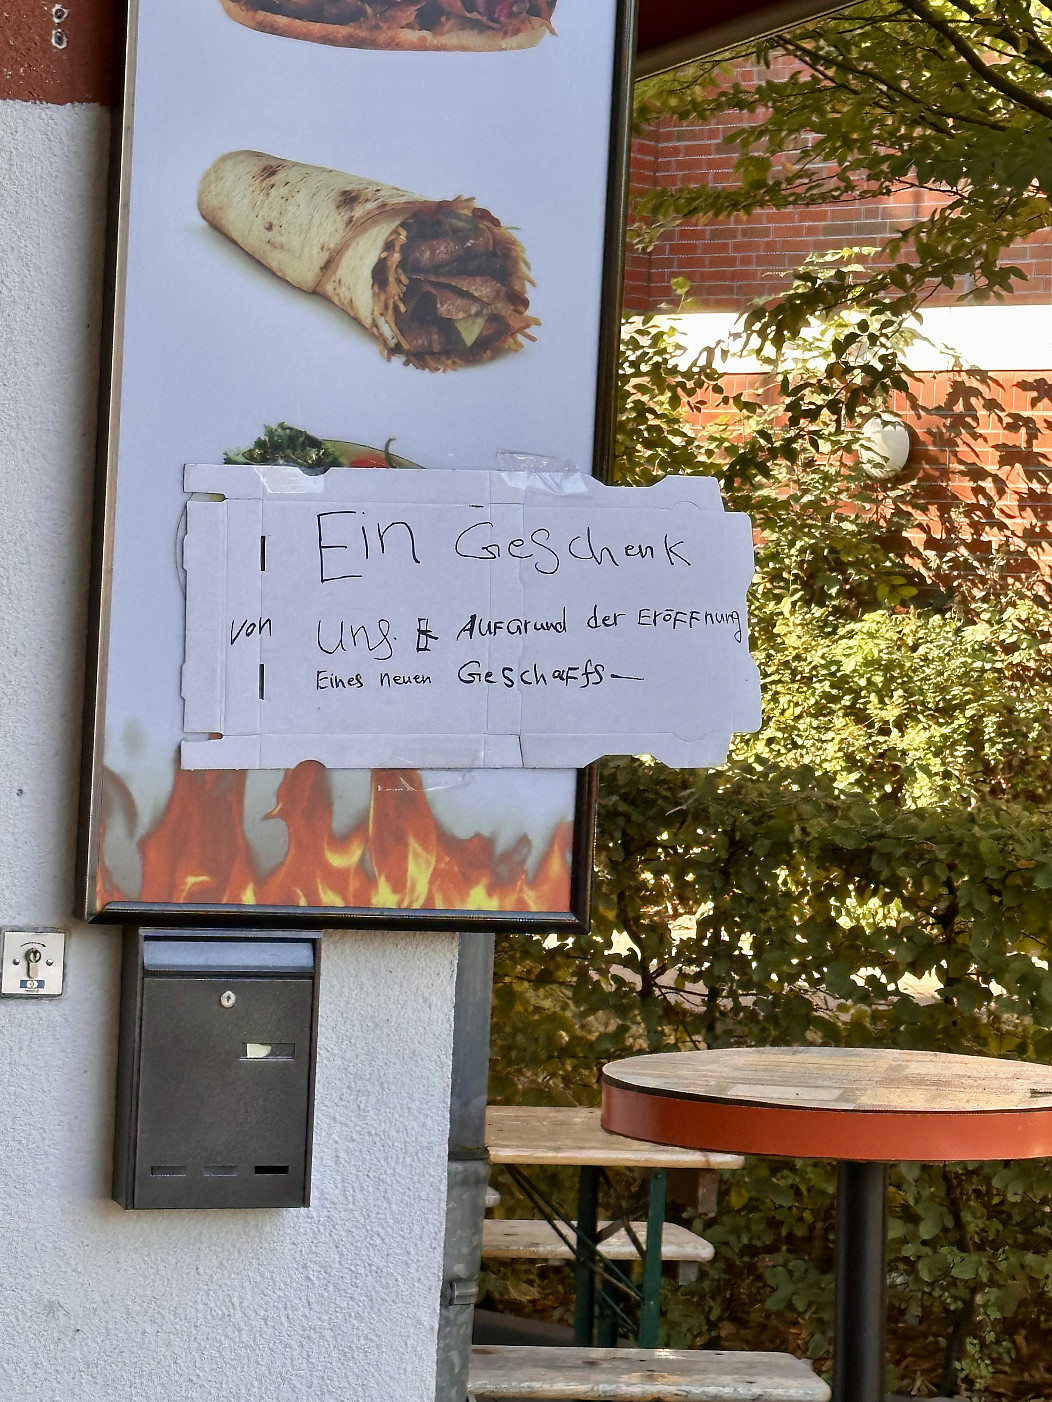 Ein Geschenk
von Uns. Aufgrund der Eröffnung
Eines neuen Geschäffs